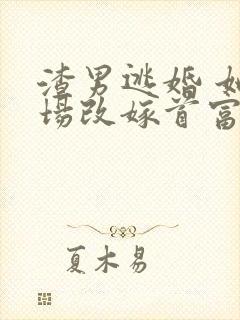 渣男逃婚 她
场改嫁首富
夏木易